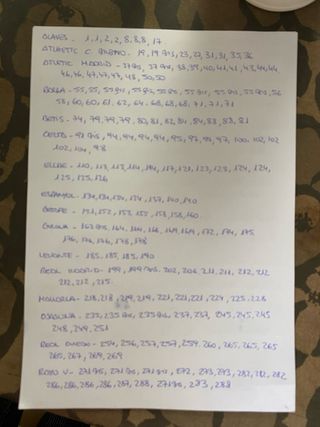 ALAVES - 1, 1, 2, 2, 8, 8, 8, 17
ATLHETIC C. BILBAO - 19, 19, 23, 27, 31, 31, 35, 36
ATLETIC MADRID - 37, 38, 39, 40, 41, 41, 43, 44, 44
46, 46, 47, 47, 47, 48, 50, 50
BARÇA - 55, 55, 55, 55, 55, 55, 55, 56
58, 60, 60, 61, 62, 64, 68, 68, 68, 71, 71, 71
BETIS - 74, 79, 79, 79, 82, 81, 82, 84, 84, 88, 88, 81
CELTA - 94, 94, 94, 94, 95, 97, 97, 100, 102, 102
102, 104, 98
ELCHE - 110, 113, 113, 114, 114, 117, 121, 123, 123, 124, 124,
125, 125, 126
ESPANYOL - 134, 134, 134, 134, 137, 140, 140
GETAFE - 151, 152, 153, 155, 158, 158, 160
GIRONA - 164, 164, 166, 169, 169, 172, 174, 175,
176, 176, 176, 178, 178
LEVANTE - 185, 185, 185, 190
REAL MADRID - 199, 199, 202, 206, 211, 211, 212, 212
212, 212, 215
MALLORCA - 218, 218, 219, 219, 221, 221, 221, 224, 225, 228
OSASUNA - 235, 235, 235, 237, 237, 245, 245, 245
248, 249, 251
REAL OVIEDO - 254, 256, 257, 257, 259, 260, 265, 265, 265
265, 267, 269, 269
RAYO V - 271, 271, 271, 272, 273, 273, 282, 282, 282
286, 286, 286, 286, 287, 288, 271, 283, 288